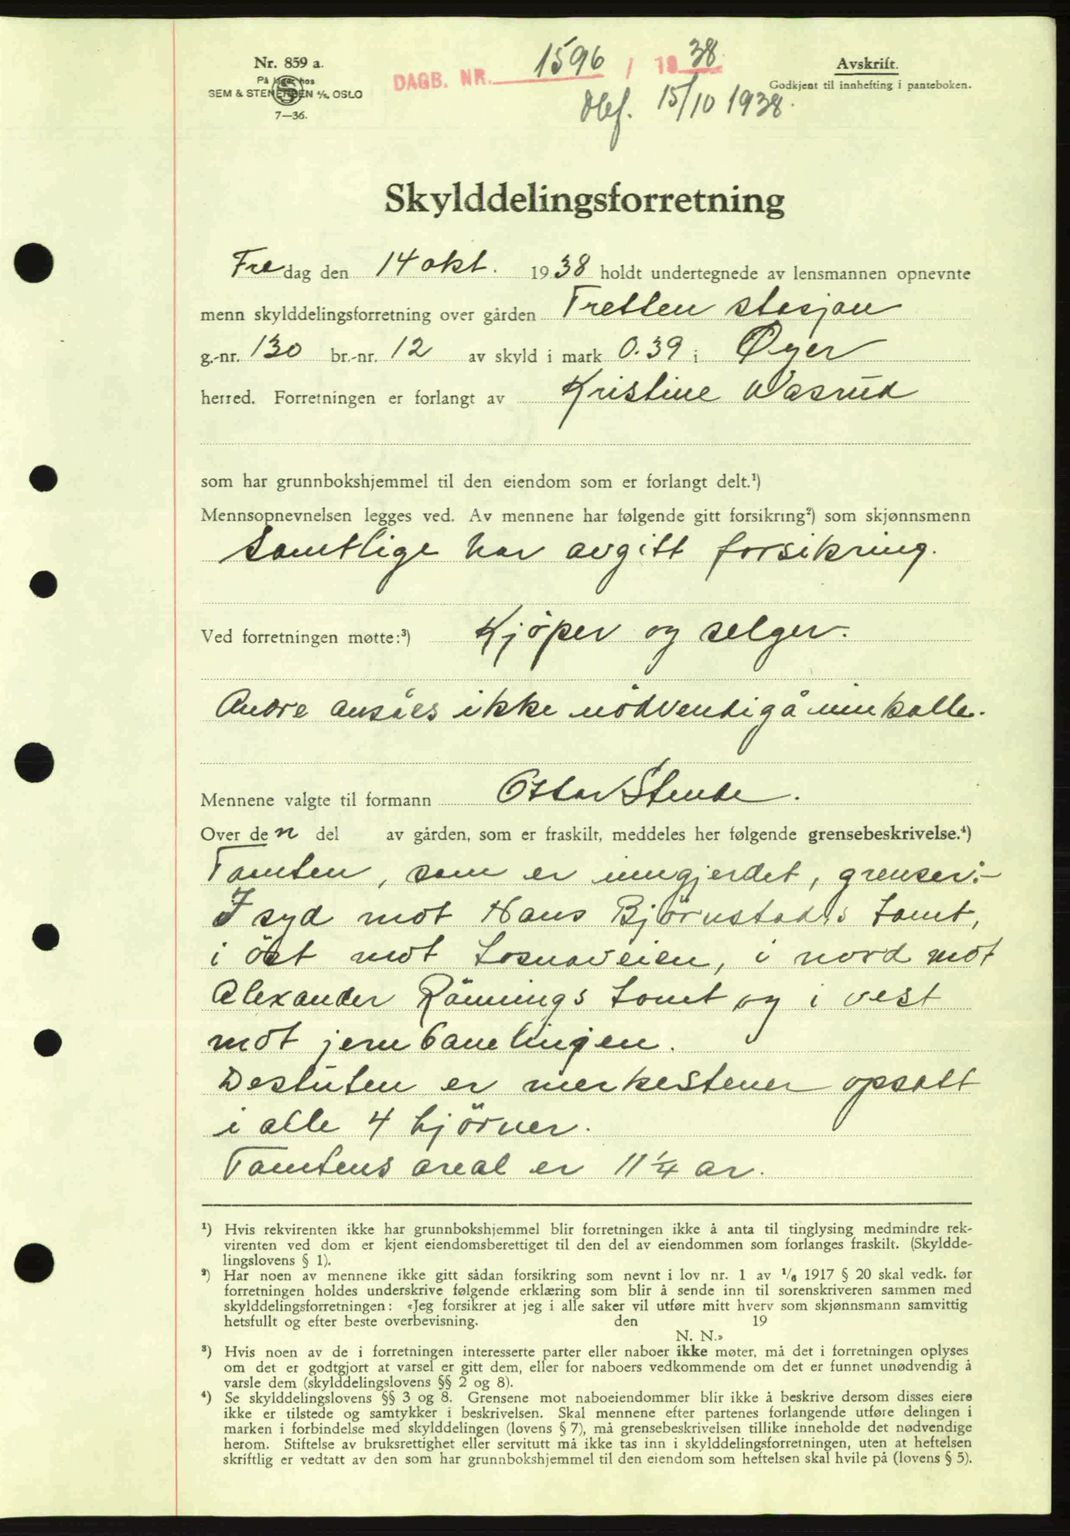 Nr. 859 a.
På lager hos
SEM & STENERSEN A/S, OSLO
7—36.
DAGB. NR. 1596 / 1938
Avskrift.
Godkjent til innhefting i panteboken.
15/10 1938.
Skylddelingsforretning
Fredag den 14 okt. 1938 holdt undertegnede av lensmannen opnevnte
menn skylddelingsforretning over gården Tretten stasjon
g.-nr. 130 br.-nr. 12 av skyld i mark 0.39 i Øyer
herred. Forretningen er forlangt av Kristine Vasrud
som har grunnbokshjemmel til den eiendom som er forlangt delt.¹)
Mennsopnevnelsen legges ved. Av mennene har følgende gitt forsikring²) som skjønnsmenn
Samtlige har avgitt forsikring.
Ved forretningen møtte:³) Kjöper og selger.
Andre ansåes ikke nödvendig å innkalle.
Mennene valgte til formann Ottar Stende.
Over den del av gården, som er fraskilt, meddeles her følgende grensebeskrivelse.⁴)
Tomten, som er inngjerdet, grenser:-
I syd mot Hans Björnstads tomt,
i öst mot Losnaveien, i nord mot
Alexander Rönnings tomt og i vest
mot jernbanelinjen.
Desluten er merkestener opsatt
i alle 4 hjörner.
Tomtens areal er 11 1/4 ar.
¹) Hvis rekvirenten ikke har grunnbokshjemmel blir forretningen ikke å anta til tinglysing medmindre rek-
virenten ved dom er kjent eiendomsberettiget til den del av eiendommen som forlanges fraskilt. (Skyldde-
lingslovens § 1).
²) Har noen av mennene ikke gitt sådan forsikring som nevnt i lov nr. 1 av 1/6 1917 § 20 skal vedk. før
forretningen holdes underskrive følgende erklæring som blir å sende inn til sorenskriveren sammen med
skylddelingsforretningen: «Jeg forsikrer at jeg i alle saker vil utføre mitt hverv som skjønnsmann samvittig
hetsfullt og efter beste overbevisning. den 19
N. N.»
³) Hvis noen av de i forretningen interesserte parter eller naboer ikke møter, må det i forretningen oplyses
om det er godtgjort at varsel er gitt dem, eller for naboers vedkommende om det er funnet unødvendig å
varsle dem (skylddelingslovens §§ 2 og 8).
⁴) Se skylddelingslovens §§ 3 og 8. Grensene mot naboeiendommer blir ikke å beskrive dersom disses eiere
ikke er tilstede og samtykker i beskrivelsen. Skal mennene efter partenes forlangende utføre delingen i
marken i forbindelse med skylddelingen (lovens § 7), må grensebeskrivelsen tillike inneholde det nødvendige
herom. Stiftelse av bruksrettighet eller servitutt må ikke tas inn i skylddelingsforretningen, uten at heftelsen
skriftlig er vedtatt av den som har grunnbokshjemmel til den eiendom som heftelsen skal hvile på (lovens § 5).